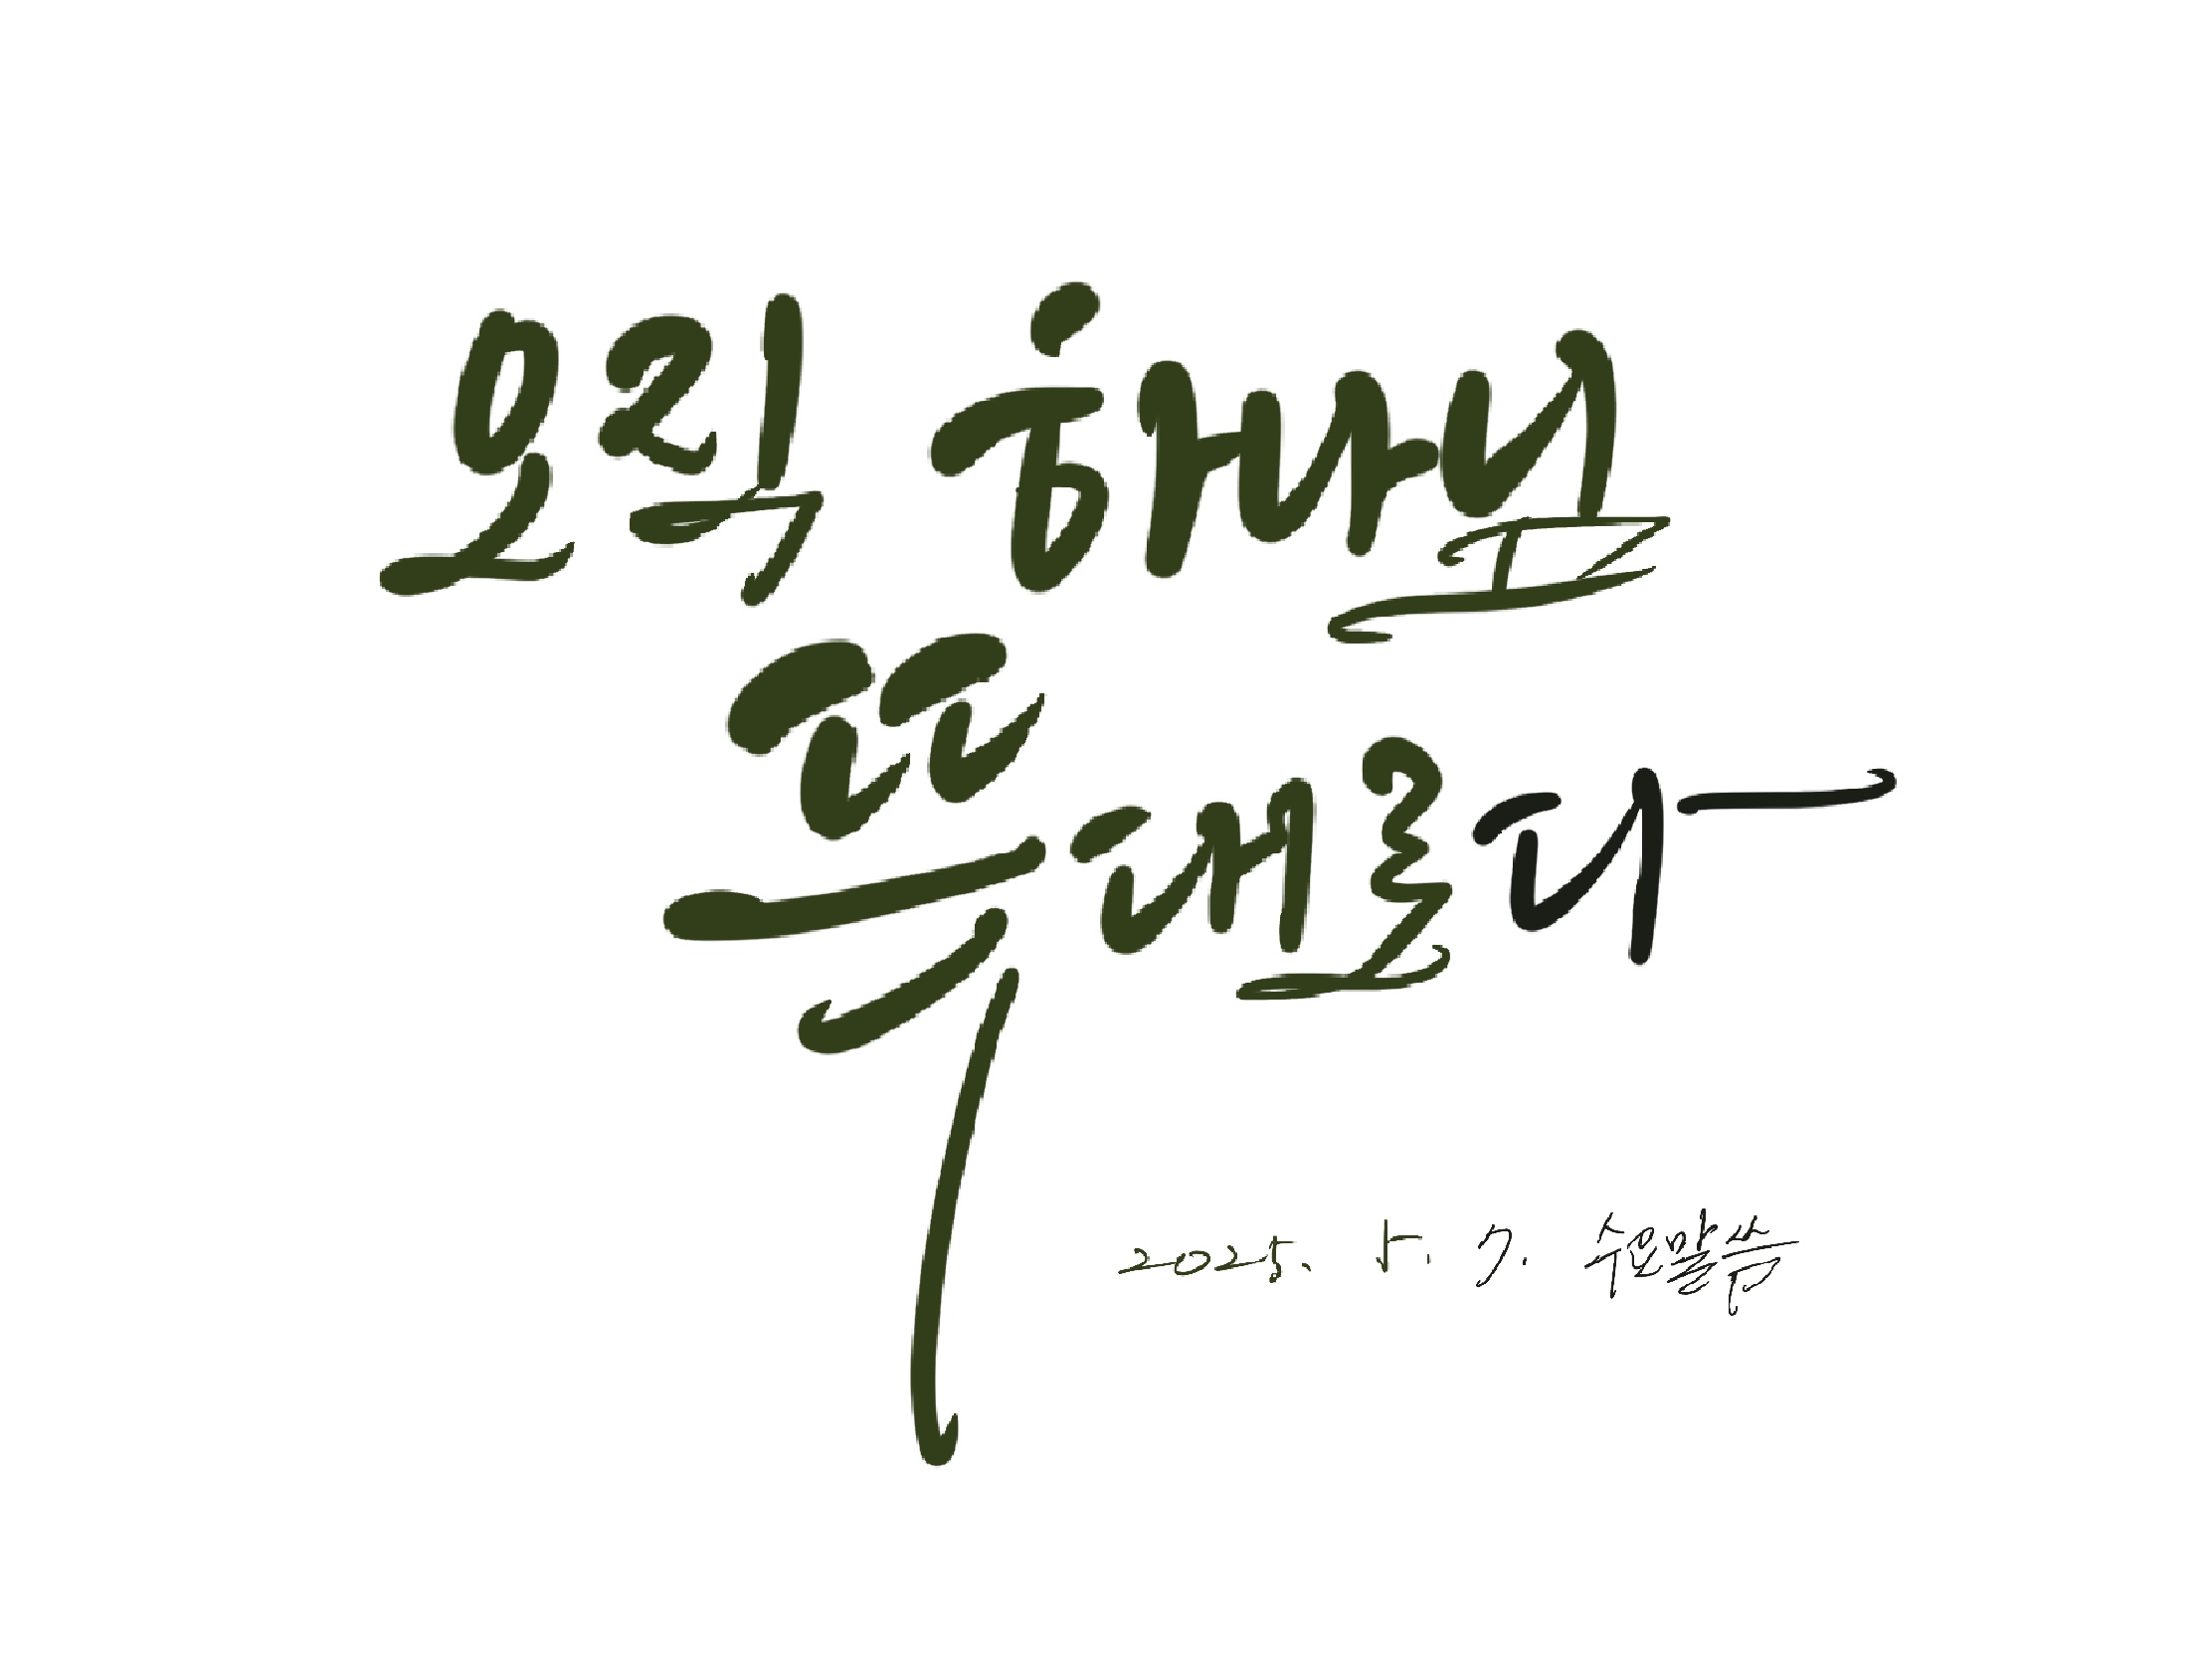 오직 하나님
뜻대로다
2025. 5. 7. 수요말씀